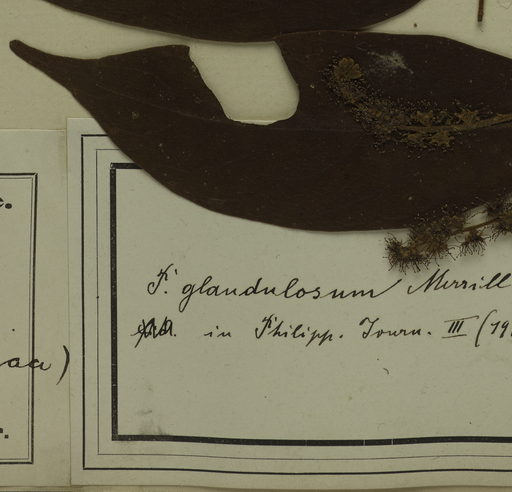 F. glandulosum Merrill
in Philipp. Journ. III (19
aa)